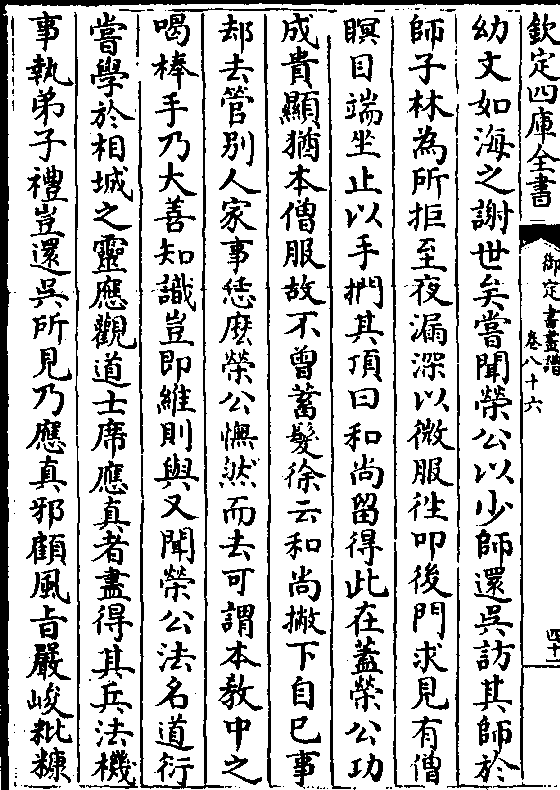 欽定四庫全書
御定書畫譜
卷八十六
四十一
幼文如海之謝世矣嘗聞榮公以少師還吳訪其師於
師子林為所拒至夜漏深以微服徃叩後門求見有僧
瞑目端坐止以手捫其頂曰和尚留得此在蓋榮公功
成貴顯猶本僧服故不曾蓄髮徐云和尚撇下自己事
却去管别人家事恁麽榮公憮然而去可謂本教中之
喝棒手乃大善知識豈即維則與又聞榮公法名道衍
嘗學於相城之靈應觀道士席應真者盡得其兵法機
事執弟子禮豈還吳所見乃應真邪顧風旨嚴峻粃糠